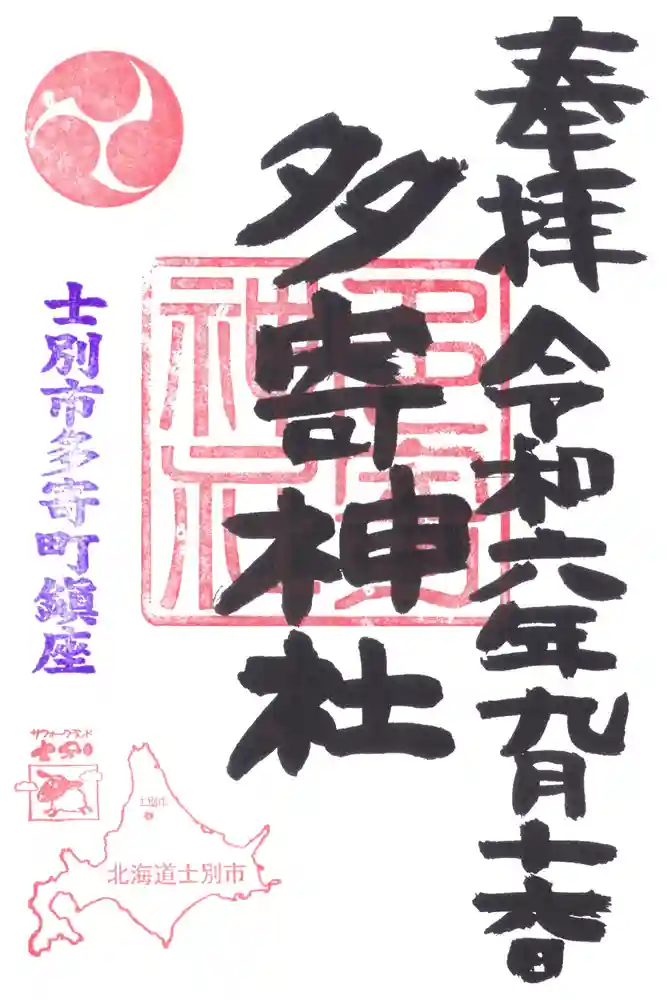 奉拝 令和六年九月十六日
多寄神社
多寄
神社
士別市多寄町鎮座
サフォークランド
士別
士別市
北海道士別市